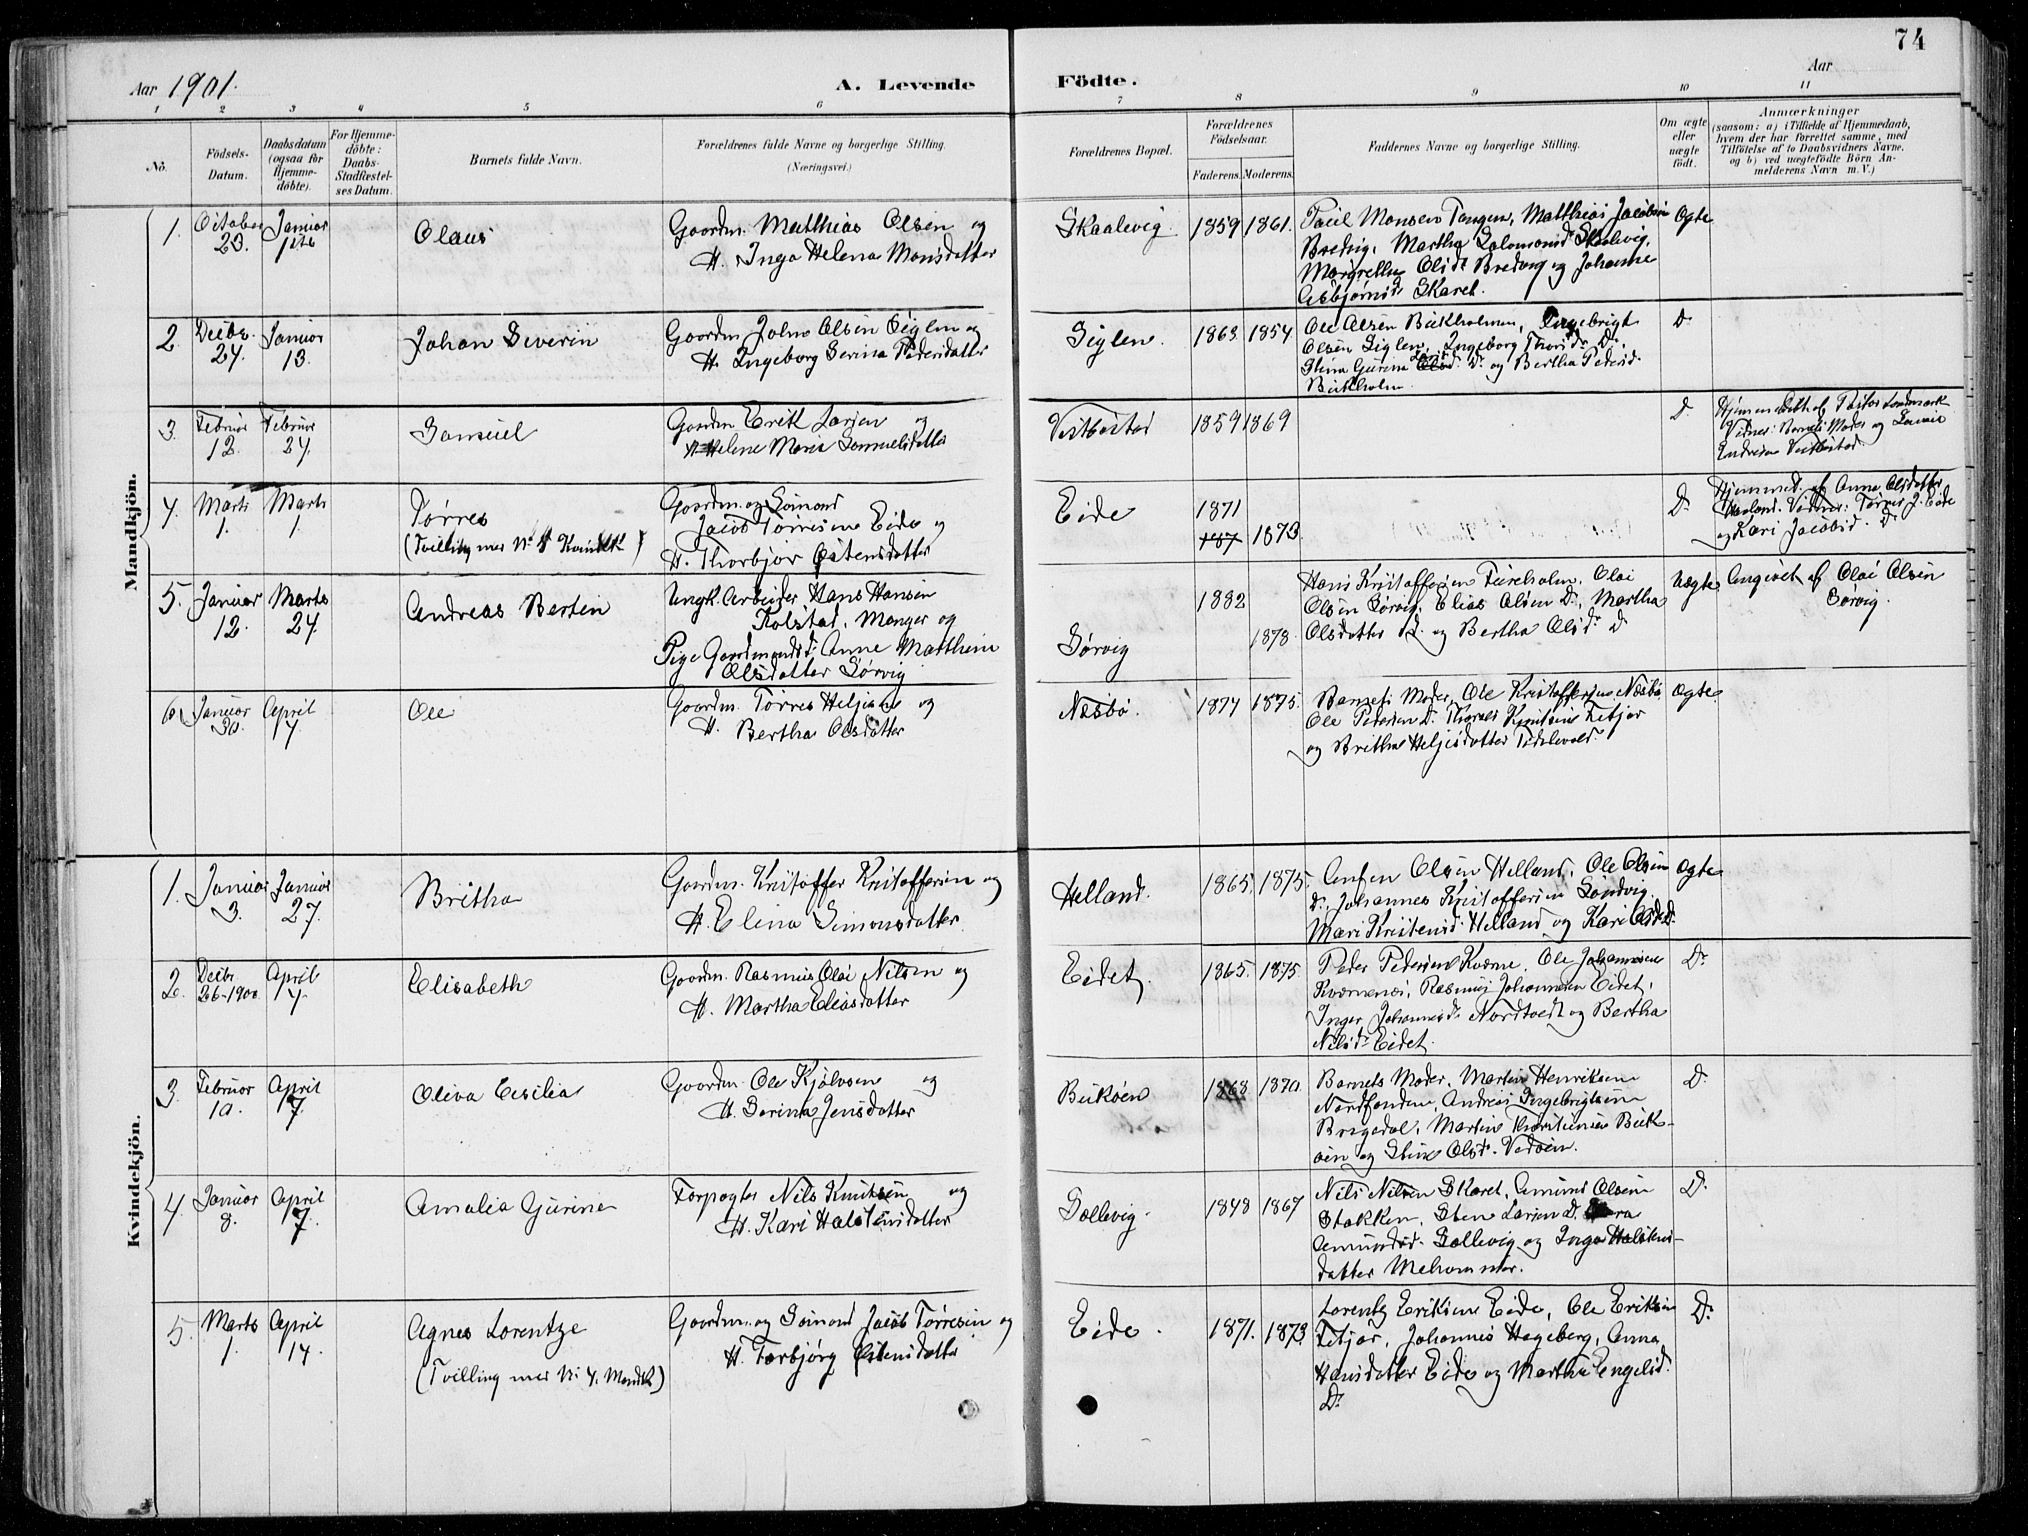 74
Aar 1901.
A. Levende Födte.
Aar
1 2 3 4 5 6 7 8 9 10 11
No.
Födsels-Datum.
Daabsdatum (ogsaa for Hjemme-döbte).
For Hjemme-döbte: Daabs-Stadfæstel-ses Datum.
Barnets fulde Navn.
Forældrenes fulde Navne og borgerlige Stilling.
(Næringsvei.)
Forældrenes Bopæl.
Forældrenes Födselsaar.
Faderens. Moderens.
Faddernes Navne og borgerlige Stilling.
Om ægte eller uægte födt.
Anmærkninger
(saasom: a) i Tilfælde af Hjemmedaab,
hvem der har forrettet samme, med
Tilföielse af to Daabsvidners Navne,
og b) ved uægtefödte Börn An-
melderens Navn m. V.)
Mandkjön.
1. October 23. Januar
Olaus
Gaardm. Matthias Olsen og
H. Inga Helena Monsdatter
Skaalevig. 1859 1861.
Paul Monsen Tangen, Matthias Jacobsen
Bredvig, Martha Salomonsd. Skaalevig,
Margrethe Olsd. Bredvig og Johanne
Asbjørnsd. Skaret.
Ægte
2. Decbr. 27. Januar 13.
Johan Severin
Gaardm. John Olsen Siglen og
H. Ingeborg Serina Pedersdatter
Siglen. 1863 1854
Ole Olsen Bukholmen, Ingebrigt
Olsen Siglen, Ingeborg D.
Stina Gurina D. og Bertha Pedersd.
Bukholm.
D.
3. Februar 12. Februar 24.
Samuel
Gaardm Erik Larsen og
H. Helene Marie Samuelsdatter
Vestbøstad 1859 1869
D.
Hjemmedøbt af Pastor Landmark
Vidner: Barnets Moder og
Endresen Vestbøstad.
4. Marts 1. Marts 1.
Tørres
(Tvilling med N. Kvindek)
Gaardm. og Sømand
Jacob Tørresen Eide og
H. Thorbjør Østensdatter
Eide 1871 1873
D.
Hjemmed. af Anna Olsdatter
Vidner: Tørres J. Eide
og Kari Jacobsd. D.
5. Januar 12. Marts 24.
Andreas Bertin
Ungk. Arbeider Hans Hansen
Kolstad, Manger og
Pige Gaardmandsd. Anne Mathhein
Olsdatter Sørvig
Sørvig 1882 1878.
Hans Kristoffersen Fureholm, Olai
Olsen Sørvig, Elias Olsen D., Martha
Olsdatter D. og Bertha Olsd. D
Uægte
Angivet af Olai Olsen
Sørvig.
6. Januar 30. April 7.
Ole
Gaardm. Tørres Heljesen og
H. Bertha Olsdatter
Næsbø. 1874 1875.
Barnets Moder, Ole Kristoffersen Næsbø
Ole Pedersen D. Knutsen Fitjar
og Britha Heljesdatter
Ægte.
Kvindekjön.
1. Januar 3. Januar 27.
Britha
Gaardm. Kristoffer Kristoffersen og
H. Elina Simonsdatter
Helland. 1865. 1875.
Anfen Olsen Helland, Ole Olsen
D., Johannes Kristoffersen Sandvig
Mari Kristensd. Helland og Kari Olsd. D.
Ægte
2. Decbr 26-1900 April
Elisabeth
Gaardm. Rasmus Olai Nilsen og
H. Martha Eliasdatter
Eidet. 1865. 1875.
Peder Pedersen Kværne, Ole Johannesen
Kværnenes, Rasmus Johannesen Eidet,
Inger Johannesd. Nordtvedt og Bertha
Nilsd. Eidet.
D.
3. Februar 10. April 7.
Oliva Cecilia
Gaardm. Ole Kjølvsen og
H. Serina Jensdatter
Bukøen 1868 1870.
Barnets Moder, Martin Henriksen
Nordfonden, Andreas Ingebrigtsen
Brugedal, Martin Buk-
øen og Stine Olsd. Vedøen.
D.
4. Januar 8. April 7.
Amalia Gurine
Forpagter Nils Knutsen og
H. Kari Halstensdatter
Sollevig. 1848 1867
Nils Nilsen Skaret, Amund Olsen
Stakken, Sten Larsen D.
Amundsd. Sollevig og Inga Halstens-
datter Mehammer.
D.
5. Marts 1. April 14.
Agnes Lorentze
(Tvilling med N: 4. Mandk)
Gaardm. og Sømand Jacob Tørresen og
H. Torbjørg Østensdatter
Eide. 1871. 1873.
Lorentz Eriksen Eide, Ole Eriksen
Fitjar, Johannes Hageberg, Anna
Hansdatter Eide og Martha Engelsd.
D.
D.